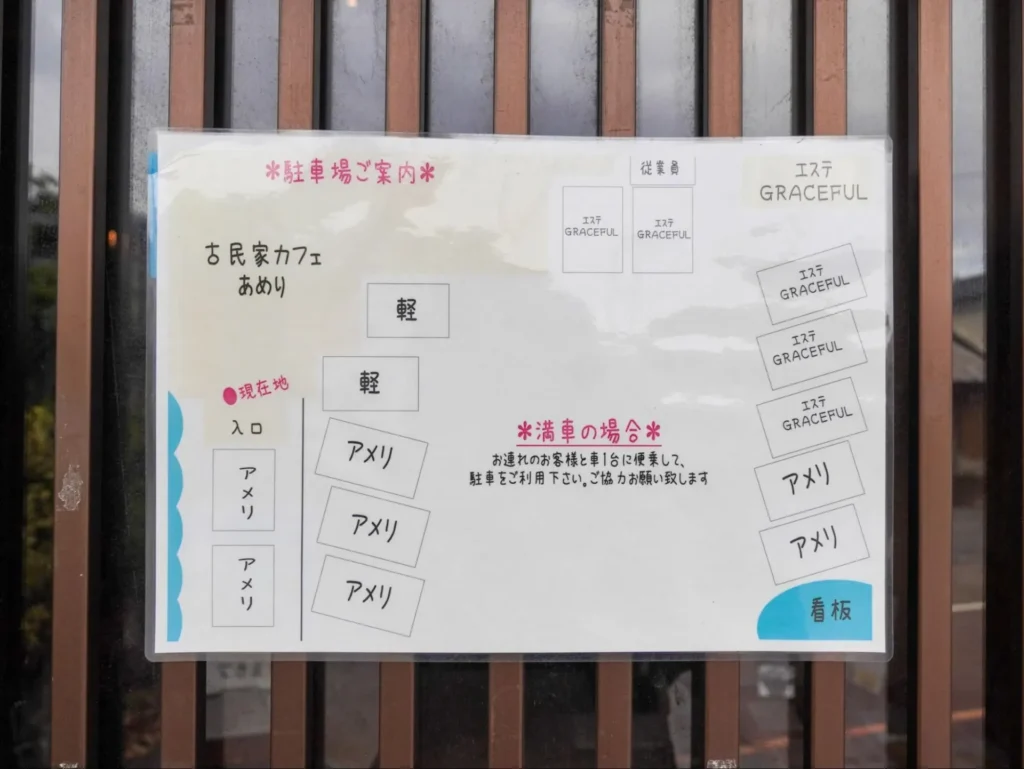 *駐車場ご案内*
従業員
エステ
GRACEFUL
エステ
GRACEFUL
エステ
GRACEFUL
古民家カフェ
あめり
エステ
GRACEFUL
軽
エステ
GRACEFUL
軽
●現在地
エステ
GRACEFUL
入口
*満車の場合*
お連れのお客様と車1台に便乗して、
駐車をご利用下さい。ご協力お願い致します
アメリ
アメリ
アメリ
アメリ
アメリ
アメリ
アメリ
看板